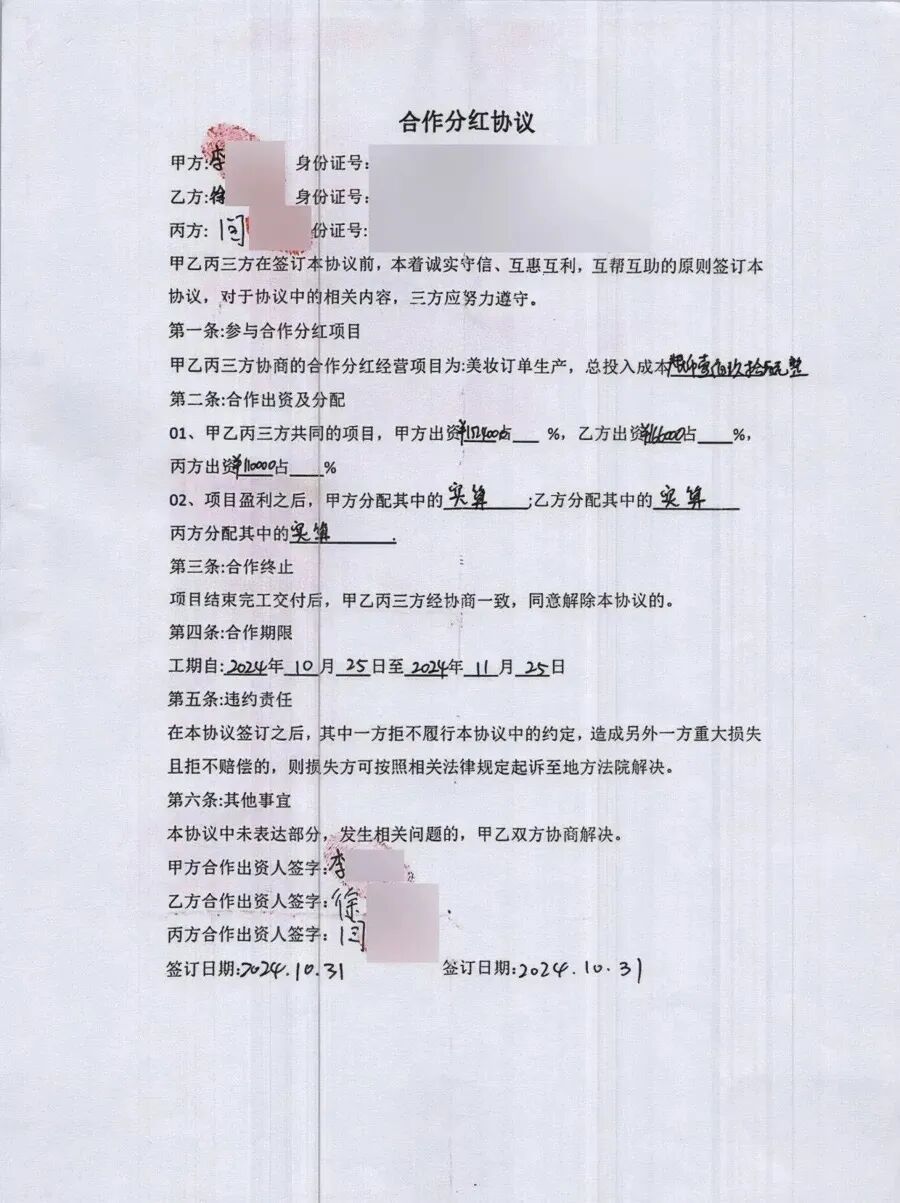 合作分红协议
甲方:李 身份证号:
乙方:徐 身份证号:
丙方: 闫 份证号:
甲乙丙三方在签订本协议前，本着诚实守信、互惠互利，互帮互助的原则签订本
协议，对于协议中的相关内容，三方应努力遵守。
第一条:参与合作分红项目
甲乙丙三方协商的合作分红经营项目为:美妆订单生产，总投入成本
第二条:合作出资及分配
01、甲乙丙三方共同的项目，甲方出资¥152400占___ %，乙方出资¥166000占____%，
丙方出资¥110000占____%
02、项目盈利之后，甲方分配其中的 实算 ;乙方分配其中的 实算
丙方分配其中的实算 .
第三条:合作终止
项目结束完工交付后，甲乙丙三方经协商一致，同意解除本协议的。
第四条:合作期限
工期自:2024年 10 月 25 日至 2024年 11 月 25 日
第五条:违约责任
在本协议签订之后，其中一方拒不履行本协议中的约定，造成另外一方重大损失
且拒不赔偿的，则损失方可按照相关法律规定起诉至地方法院解决。
第六条:其他事宜
本协议中未表达部分，发生相关问题的，甲乙双方协商解决。
甲方合作出资人签字:李
乙方合作出资人签字:徐
丙方合作出资人签字: 闫
签订日期:2024.10.31 签订日期:2024.10.31